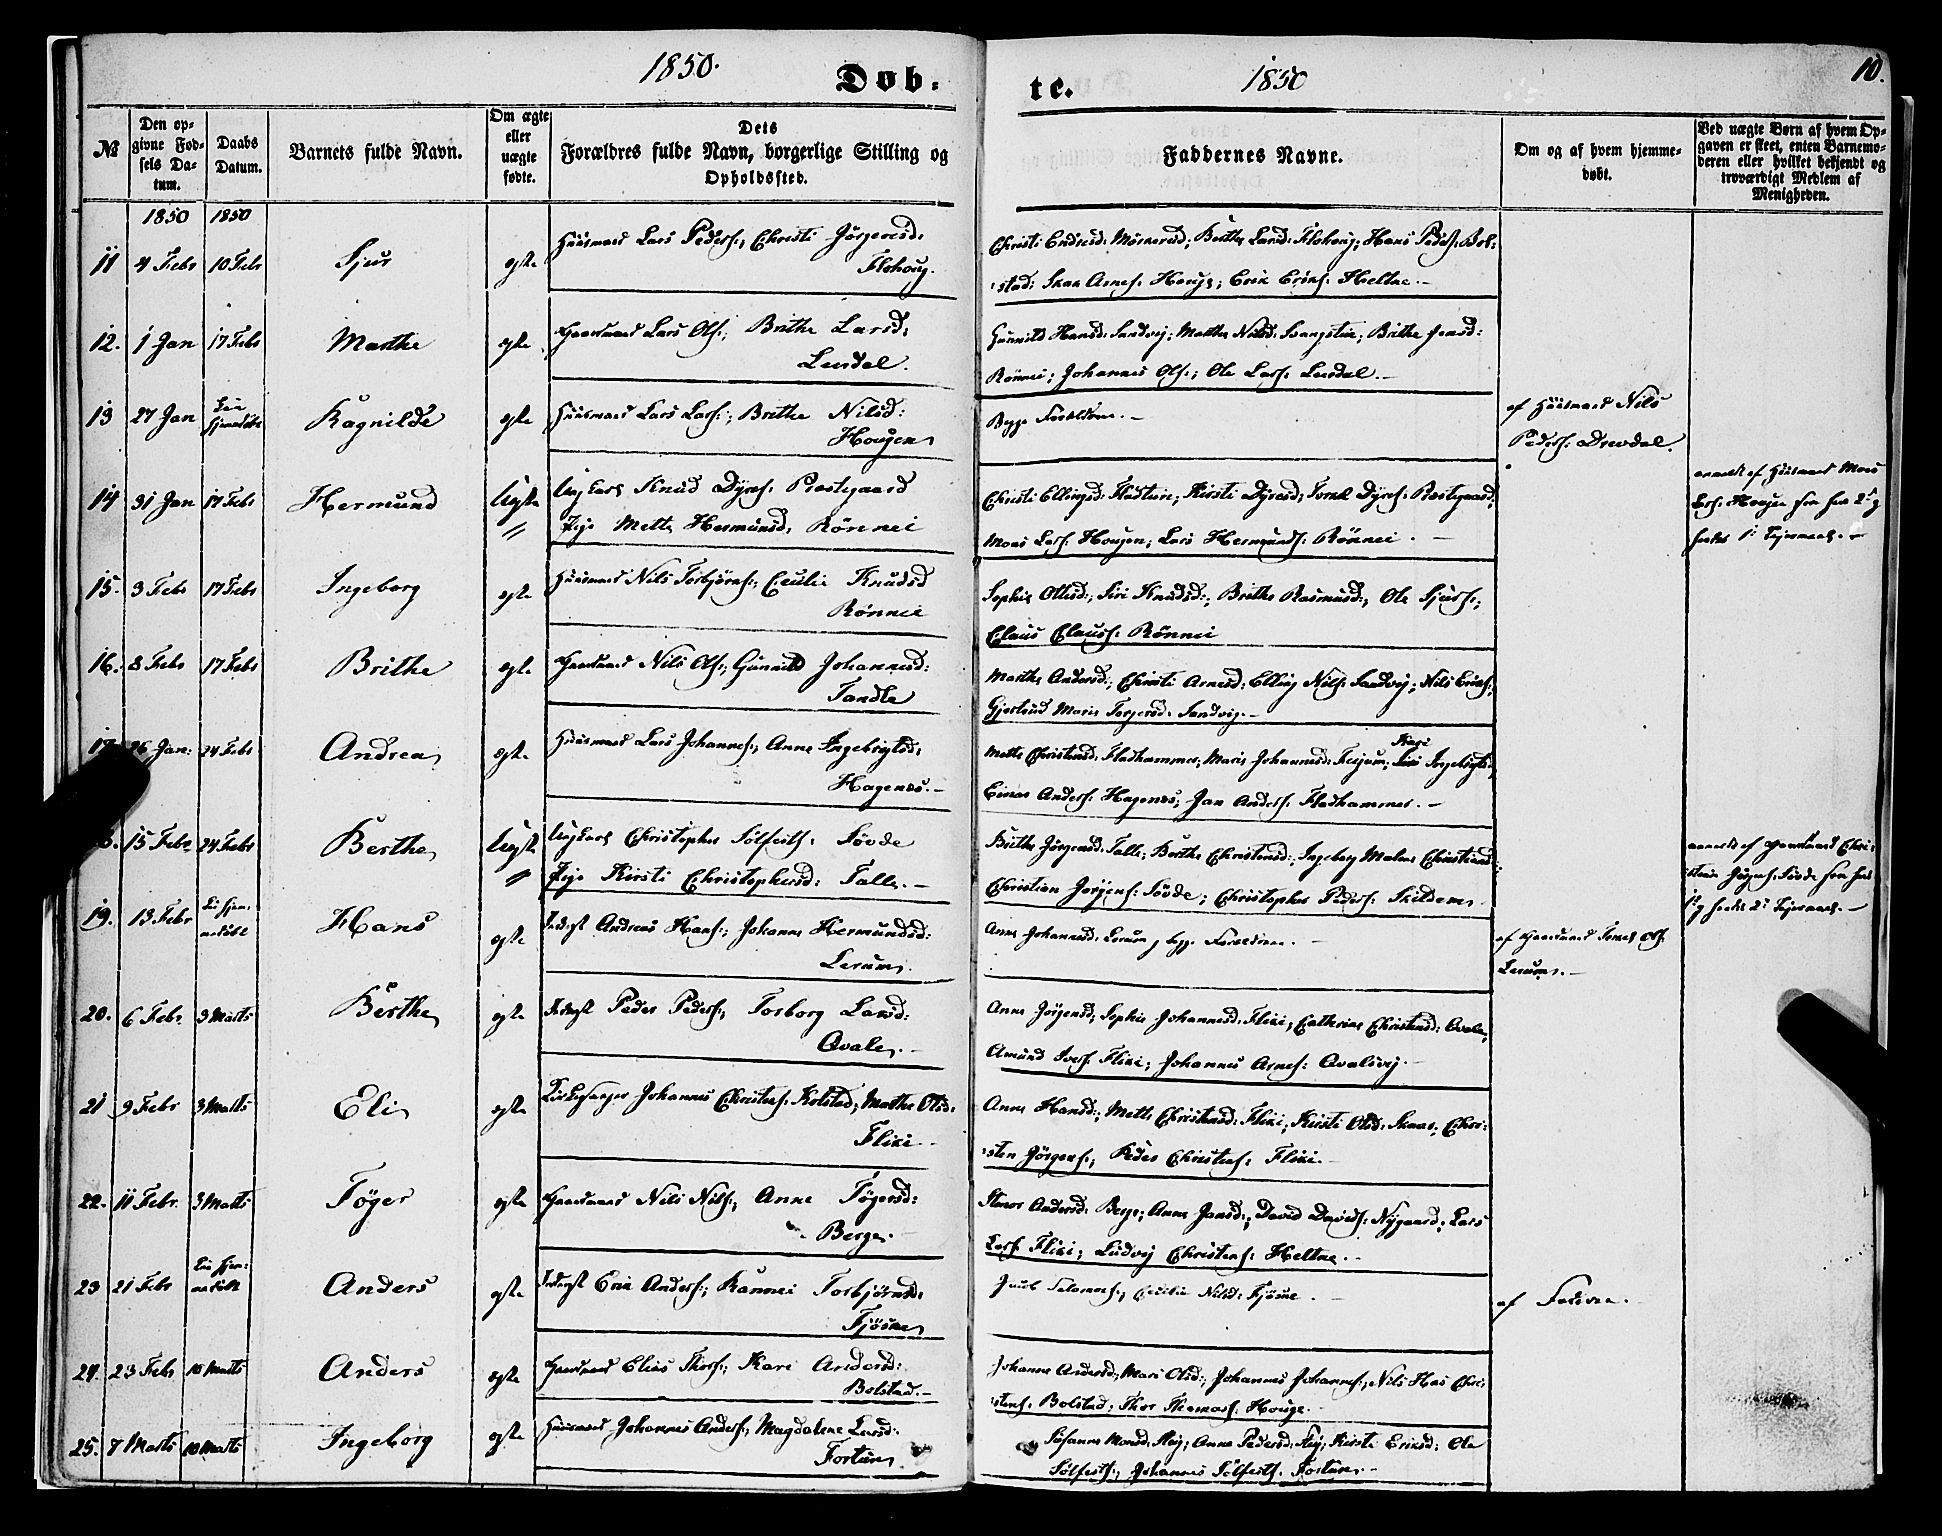 1850. Døb- te. 1850 10.
№
Den opgivne Fødsels Datum.
Daabs Datum.
Barnets fulde Navn.
Om ægte eller uægte fødte.
Dets Forældres fulde Navn, borgerlige Stilling og Opholdssted.
Faddernes Navne.
Om og af hvem hjemmedøbt.
Ved uægte Børn af hvem Opgaven er skeet, enten Barnemoderen eller hvilket bekjendt og troværdigt Medlem af Menigheden.
1850 1850
11 4 Febr 10 Febr Sjur egte Huusmand Lars Peders:, Christi Jørgensd: Flohoug.
Christi Endresd: Berthe Larsd: Flohoug; Hans Peders: Bol-
stad; Arnes: Houge; Erik Eriks: Heltne.-
12. 1 Jan 17 Febr Marthe egte Gaardmand Lars Ols:, Brithe Larsd, Lerdal.
Gunnild Hansd: Sandvig; Marthe Nilsd: Brithe Jensd:
Rönnei; Johannes Ols:; Ole Lars: Lerdal.-
13 27 Jan Ragnilde egte Huusmand Lars Lars:, Brithe Nilsd: Hougen
Begge Forældrene.-
af Huusmand Nils
Peders: Drevdal.
14 31 Jan 17 Febr Hermund Uegte Ungkarl Knud Dyres: Præstegaard
Pige Mette Hermunsd, Rönnei
Christi Ellingsd: Kirsti Dyresd; Dyres: Præstegaard;
Mons Lars: Hougen; Lars Hermunds: Rönnei.-
anmeldt af Huusmand Mons
Lars: Hougen
15. 3 Febr 17 Febr Ingeborg egte Huusmand Nils Torbjörns:, Cecilie Knudsd Rönnei
Sophie Ottesd:, Siri Knudsd:, Brithe Rasmusd:, Ole Sjurs:,
Claus Claus: Rönnei
16. 8 Febr 17 Febr Brithe egte Gaardmand Nils Ols:, Gunnild Johannesd: Tandle
Marthe Andersd:, Christi Arnesd: Elling Nils: Sandvig; Nils Eriks:,
Gjertrud Marie Torgersd: Sandvig.-
26 Jan: 24 Febr Andrea egte Huusmand Lars Johannes:, Anne Ingebrigtsd: Hagenes.-
Mette Christensd: Fladhammer, Marie Johannesd: Kari Ingebrigtsd:,
Einar Anders: Hagenæs; Jan Anders: Fladhammer.-
15 Febr 24 Febr Berthe Uegte Ungkarl Christopher Sölfests: Sövde
Pige Kirsti Christophersd: Talle.-
Brithe Jörgensd: Talle; Berthe Christensd:, Ingeborg Malene Christiansd:
Christian Jörgens: Sövde; Christopher Peders: Skildem.
anmeldt af Gaardmand Chri-
Jörgens: Sövde
19. 13 Febr Hans egte Inderst Andreas Hans:, Johanne Hermundsd: Lerum.
Anne Johannesd: Lerum, begge Forældrene.-
af Gaardmand Ols:
Lerum.-
20. 6 Febr 3 Marts Berthe egte Inderst Peder Peders:, Torborg Larsd: Qvale.-
Anne Jörgensd, Sophie Johannesd: Flixi; Cathrine Christensd: Qvale,
Amund Ivers: Flixi; Johannes Arnes: Qvalsvig.-
21 9 Febr 3 Marts Eli egte Kirkesanger Johannes Christens: Kolstad, Marthe Olsd: Flixi.-
Anne Hansd:, Mette Christensd: Flixi; Kirsti Olsd: Skaar, Chri-
sten Jörgens:, Peder Christens: Flixi.-
22. 11 Febr. 3 Marts Töger egte Gaardmand Nils Nils:, Anne Tögersd: Berge.-
Andersd: Berge; Anne Jansd:, David Davids: Nygaard, Lars
Lars: Flixi; Ludvig Christens: Heltne.-
23 21 Febr Anders egte Inderst Erik Anders:, Rannei Torbjörnsd: Fjösne
Jacob Salomons:, Cecilie Nilsd: Fjösne.
af Faderen.
24. 23 Febr 10 Marts Anders egte Gaardmand Elias Thors:, Kari Andersd: Bolstad.-
Johanne Andersd:, Mari Olsd:, Johannes Johannes:, Nils Chri-
stens: Bolstad; Thor Thomas: Houge.-
25. 7 Marts 10 Marts Ingeborg egte Huusmand Johannes Anders:, Magdalene Larsd: Fortun.
Susanne Monsd: Anne Pedersd: Kirsti Eriksd: Ole
Sölfests:, Johannes Sölfests: Fortun.-